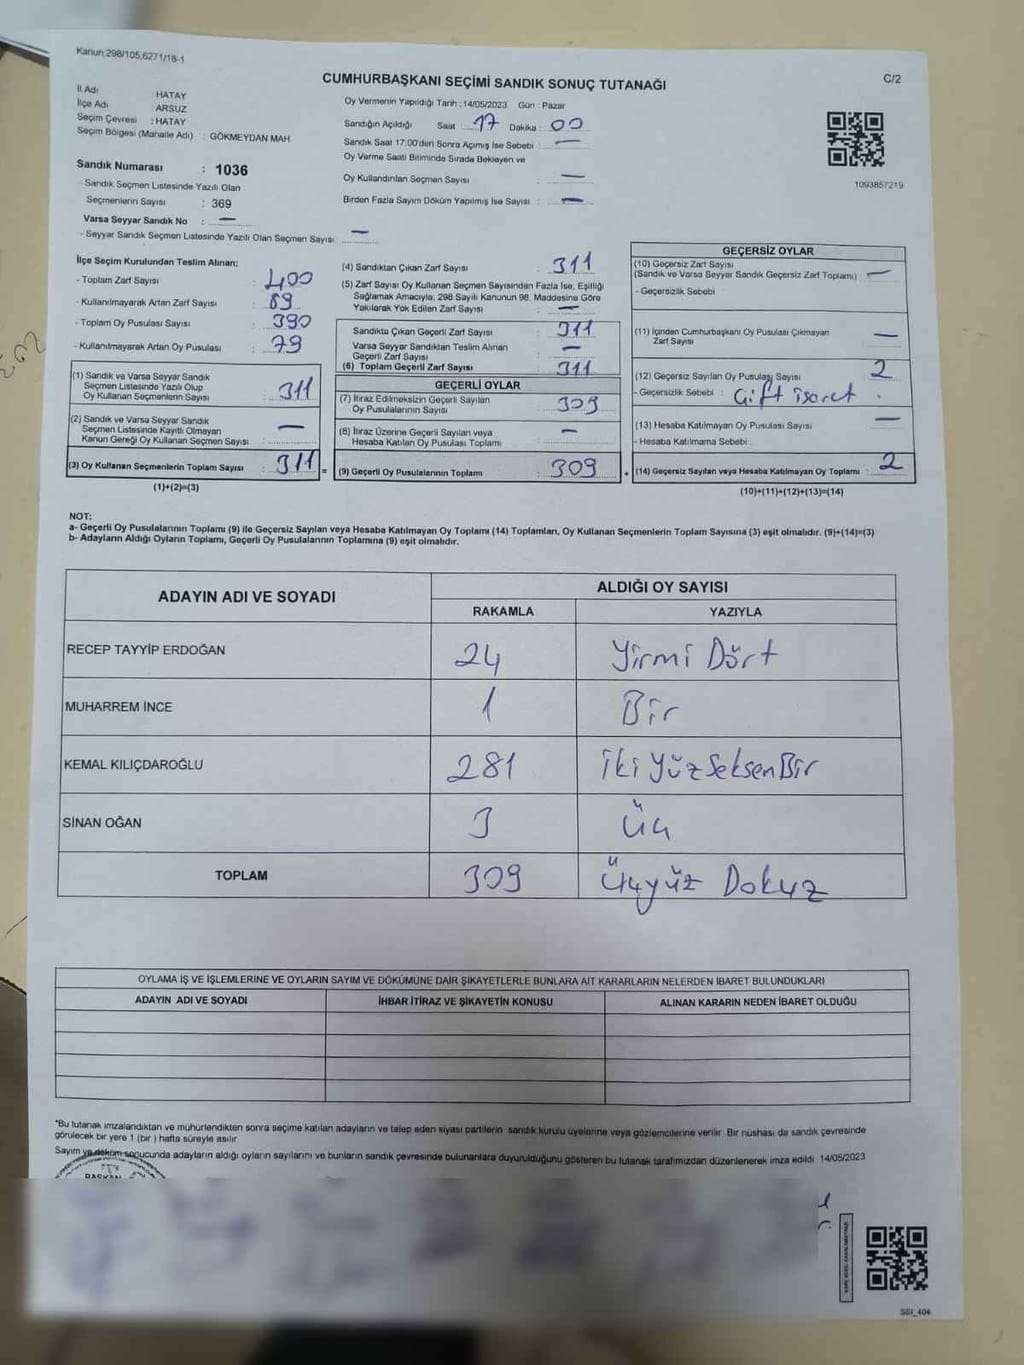 Kanun;298/105,6271/18-1
C/2
CUMHURBAŞKANI SEÇİMİ SANDIK SONUÇ TUTANAĞI
İl Adı : HATAY
İlçe Adı : ARSUZ
Seçim Çevresi : HATAY
Seçim Bölgesi (Mahalle Adı) : GÖKMEYDAN MAH
Sandık Numarası : 1036
- Sandık Seçmen Listesinde Yazılı Olan
Seçmenlerin Sayısı : 369
Varsa Seyyar Sandık No : —
- Seyyar Sandık Seçmen Listesinde Yazılı Olan Seçmen Sayısı: —
Oy Vermenin Yapıldığı Tarih : 14/05/2023 Gün : Pazar
Sandığın Açıldığı Saat : 17 Dakika : 00
Sandık Saat 17:00'den Sonra Açımış İse Sebebi : —
Oy Verme Saati Bitiminde Sırada Bekleyen ve
Oy Kullandırılan Seçmen Sayısı : —
Birden Fazla Sayım Döküm Yapılmış İse Sayısı : —
1093857219
İlçe Seçim Kurulundan Teslim Alınan;
- Toplam Zarf Sayısı : 400
- Kullanılmayarak Artan Zarf Sayısı : 89
- Toplam Oy Pusulası Sayısı : 390
- Kullanılmayarak Artan Oy Pusulası : 79
(1) Sandık ve Varsa Seyyar Sandık
Seçmen Listesinde Yazılı Olup
Oy Kullanan Seçmenlerin Sayısı : 311
(2) Sandık ve Varsa Seyyar Sandık
Seçmen Listesinde Kayıtlı Olmayan
Kanun Gereği Oy Kullanan Seçmen Sayısı : —
(3) Oy Kullanan Seçmenlerin Toplam Sayısı : 311 =
(1)+(2)=(3)
(4) Sandıktan Çıkan Zarf Sayısı : 311
(5) Zarf Sayısı Oy Kullanan Seçmen Sayısından Fazla İse, Eşitliği
Sağlamak Amacıyla, 298 Sayılı Kanunun 98. Maddesine Göre
Yakılarak Yok Edilen Zarf Sayısı : —
Sandıkta Çıkan Geçerli Zarf Sayısı : 311
Varsa Seyyar Sandıktan Teslim Alınan
Geçerli Zarf Sayısı : —
(6) Toplam Geçerli Zarf Sayısı : 311
GEÇERLİ OYLAR
(7) İtiraz Edilmeksizin Geçerli Sayılan
Oy Pusulalarının Sayısı : 309
(8) İtiraz Üzerine Geçerli Sayılan veya
Hesaba Katılan Oy Pusulası Toplamı : —
(9) Geçerli Oy Pusulalarının Toplamı : 309 +
GEÇERSİZ OYLAR
(10) Geçersiz Zarf Sayısı
(Sandık ve Varsa Seyyar Sandık Geçersiz Zarf Toplamı) —
- Geçersizlik Sebebi :
(11) İçinden Cumhurbaşkanı Oy Pusulası Çıkmayan
Zarf Sayısı —
(12) Geçersiz Sayılan Oy Pusulası Sayısı 2
- Geçersizlik Sebebi : Çift işaret .
(13) Hesaba Katılmayan Oy Pusulası Sayısı : —
- Hesaba Katılmama Sebebi :
(14) Geçersiz Sayılan veya Hesaba Katılmayan Oy Toplamı : 2
(10)+(11)+(12)+(13)=(14)
NOT:
a- Geçerli Oy Pusulalarının Toplamı (9) ile Geçersiz Sayılan veya Hesaba Katılmayan Oy Toplamı (14) Toplamları, Oy Kullanan Seçmenlerin Toplam Sayısına (3) eşit olmalıdır. (9)+(14)=(3)
b- Adayların Aldığı Oyların Toplamı, Geçerli Oy Pusulalarının Toplamına (9) eşit olmalıdır.
ADAYIN ADI VE SOYADI
ALDIĞI OY SAYISI
RAKAMLA YAZIYLA
RECEP TAYYİP ERDOĞAN 24 Yirmi Dört
MUHARREM İNCE 1 Bir
KEMAL KILIÇDAROĞLU 281 iki yüz SeksenBir
SİNAN OĞAN 3 Üç
TOPLAM 309 Üçyüz Dokuz
OYLAMA İŞ VE İŞLEMLERİNE VE OYLARIN SAYIM VE DÖKÜMÜNE DAİR ŞİKAYETLERLE BUNLARA AİT KARARLARIN NELERDEN İBARET BULUNDUKLARI
ADAYIN ADI VE SOYADI İHBAR İTİRAZ VE ŞİKAYETİN KONUSU ALINAN KARARIN NEDEN İBARET OLDUĞU
*Bu tutanak imzalandıktan ve mühürlendikten sonra seçime katılan adayların ve talep eden siyasi partilerin sandık kurulu üyelerine veya gözlemcilerine verilir. Bir nüshası da sandık çevresinde
görülecek bir yere 1 (bir ) hafta süreyle asılır.
Sayım ve döküm sonucunda adayların aldığı oyların sayılarını ve bunların sandık çevresinde bulunanlara duyurulduğunu gösteren bu tutanak tarafımızdan düzenlenerek imza edildi. 14/05/2023
BAŞKAN
SSI_404